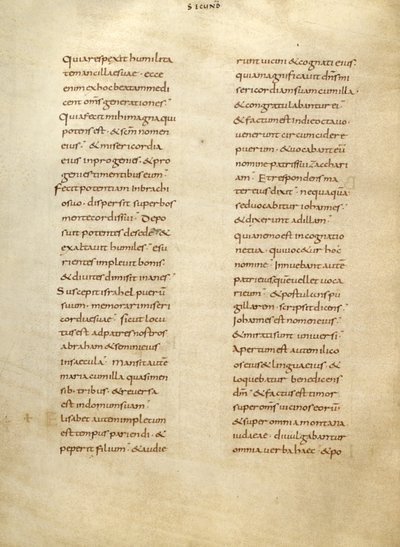 SECUND
Quia respexit humilita
tem ancillae suae · ecce
enim ex hoc beatam me di
cent oms generationes ·
Quia fecit mihi magna qui
potens est · & scm nomen
eius · & misericordia
eius in progenies & pro
genies timentibus eum ·
Fecit potentiam in brachi
o suo · dispersit superbos
mente cordis sui · Depo
suit potentes de sede &
exaltavit humiles · esu
rientes implevit bonis
& divites dimisit inanes ·
Suscepit israhel puerū
suum · memorari miseri
cordiae suae · sicut locu
tus est ad patres nostros
abraham & semini eius
in saecula · Mansit autē
maria cum illa quasi men
sib · tribus · & reversa
est in domum suam ·
Elisabet autem impletum
est tempus pariendi · &
peperit filium · & audie
runt vicini & cognati eius ·
quia magnificavit dns mi
sericordiam suam cum illa ·
& congratulabantur ei ·
& factum est in die octavo ·
venerunt circumcidere
puerum · & vocabant eū
nomine patris sui zacchari
am · Et respondens ma
ter eius dixit · nequaquā
sed vocabitur iohannes ·
& dixerunt ad illam ·
quia nemo est in cognatio
ne tua · qui voc&ur hoc
nomine · Innuebant autē
patri eius quē vellet voca
ri eum · & postulans pu
gillarem · scripsit dicens ·
Iohannes est nomen eius ·
& mirati sunt universi ·
Apertum est autem ilico
os eius & lingua eius &
loquebatur benedicens
dm · & factus est timor
super oms vicinos eorū ·
& super omnia montana
iudaeae · divulgabantur
omnia verba haec · & po